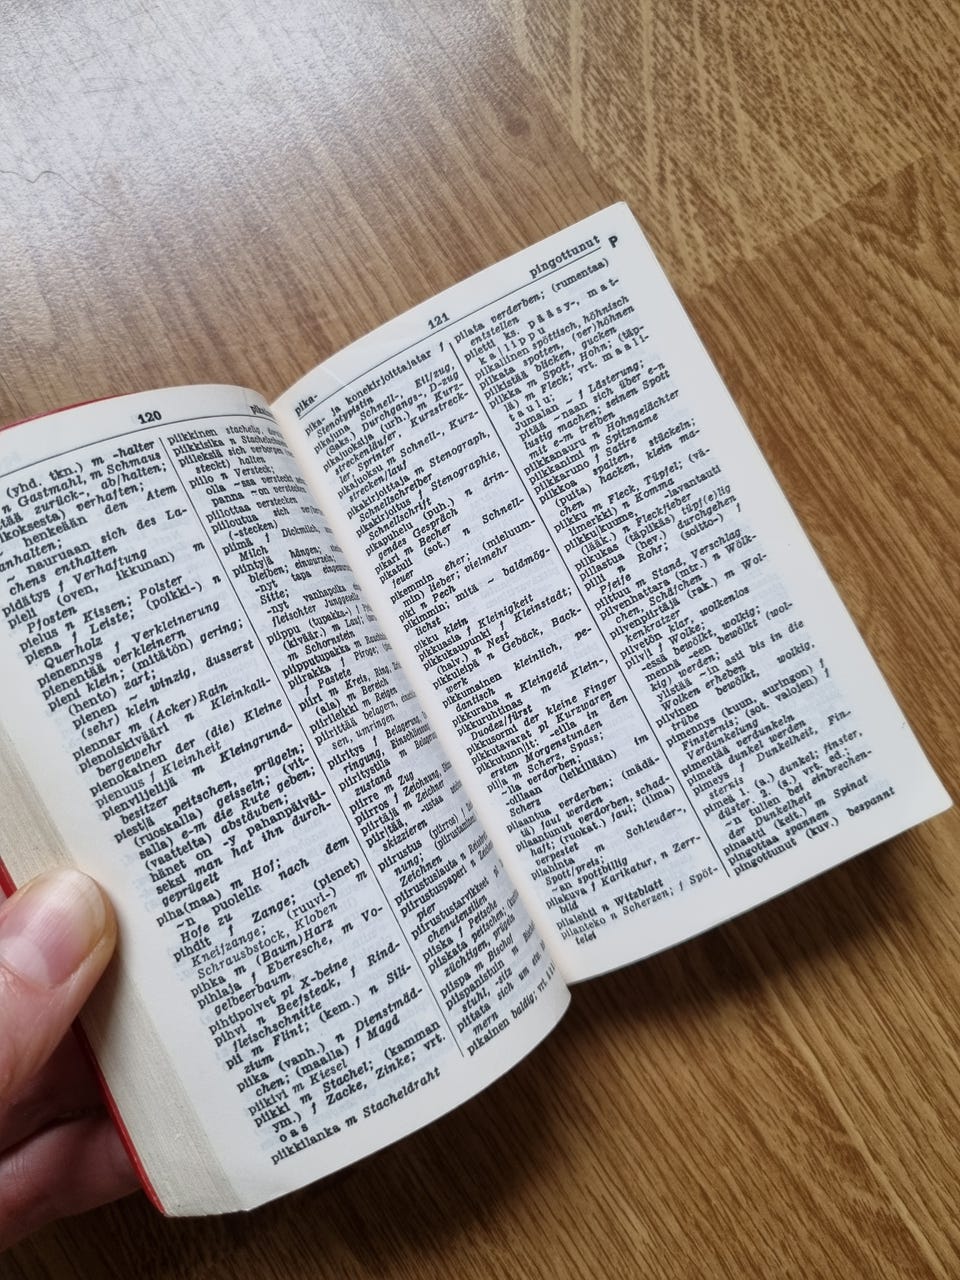 120
(yhd. tkn.) m -halter
n Gastmahl, m Schmaus
zurück-, ab/halten;
verhaften;
henkeään den Atem
anhalten;
~ nauruaan sich des La-
chens enthalten
pidätys f Verhaftung
pieli (oven, ikkunan) m
Pfosten
pielus n Kissen; Polster
piena f Leiste; (poikki-) n
Querholz
pienennys f Verkleinerung
pienentää verkleinern
pieni klein; (mitätön) gering;
(hento) zart;
pienen ~ winzig, äusserst
(sehr) klein
piennar m (Acker)Rain
pienoiskivääri n Kleinkali-
bergewehr
pienokainen der (die) Kleine
pienuus f Kleinheit
pienviljelijä m Kleingrund-
besitzer
piestä peitschen, prügeln;
(ruoskalla) geisseln; (vit-
salla) e-m die Rute geben;
(vaatteita) abstäuben;
hänet on -y pahanpäiväi-
seksi man hat ihn durch-
geprügelt
piha(maa) m Hof;
~n puolella nach dem
Hofe zu
pihdit f Zange; (pienet)
Kneifzange; (ruuvi-) m
Schraubstock, Kloben
pihka m (Baum)Harz
pihlaja f Eberesche, m Vo-
gelbeerbaum
pihtipolvet pl X-beine
pihvi n Beefsteak, f Rind-
fleischschnitte
pii m Flint; (kem.) n Sili-
zium
piika (vanh.) n Dienstmäd-
chen; (maalla) f Magd
piikivi m Kiesel
piikki m Stachel; (kamman
ym.) f Zacke, Zinke; vrt.
oas
piikkilanka m Stacheldraht
piikkinen stachelig,
piikkisika n Stachelschwein
pillo n Versteck;
olla -ssa versteckt
panna -on verstecken
piilottaa verstecken
piiloutua sich
(-stecken)
piimä f Dickmilch,
Milch
piintyä
bleiben; einwurzeln;
-nyt tapa
Sitte;
-nyt vanhapoika
fleischter Junggeselle
piippu (tupakka-)
(kiväär.) m Lauf;
m Schornstein
piipputupakka m
piirakka f Pirogge;
f Pastete
piiri m Kreis, Ring,
(ala) m Bereich
piirileikki m Reigen
piirittää belagern,
sen, umringen
piiritys f Belagerung,
ringung f
piiritystila
zustand
piirre m Zug
piirros f Zeichnung,
piirtäjä m Zeichner
piirtää,
skizzieren
piirustus (piirros) f
nung;
Zeichnen
piirustuslauta n
piirustuspaperi n
pier
piirustustarvikkeet pl
chenutensilien
piiska f Peitsche,
piiskata peitschen,
züchtigen, prügeln
piispa m Bischof
piispanistuin m
stuhl, -sitz
piitata sich um
mern
pikainen baldig;
pika-
121
pingottunut P
pika- ja konekirjoittajatar f
Stenotypistin
pikajuna Schnell-, Eil/zug,
(Saks.) Durchgangs-, D-zug
pikajuoksija (urh.) m Kurz-
streckenläufer,
Sprinter
pikajuoksu m Schnell-, Kurz-
strecken/lauf
pikakirjoittaja m Stenograph,
Schnellschreiber
pikakirjoitus f Stenographie,
Schnellschrift
pikapuhelu (puh.) n drin-
gendes Gespräch
pikari m Becher
pikatuli (sot.) n Schnell-
feuer
pikemmin eher; (mieluum-
min) lieber; vielmehr
piki n Pech
pikimmin; mitä ~ baldmög-
lichst
pikku klein
pikkuasia f Kleinigkeit
pikkukaupunki f Kleinstadt;
(halv.) n Nest
pikkuleipä n Gebäck, Back-
werk
pikkumainen kleinlich, pe-
dantisch
pikkuraha n Kleingeld
pikkuruhtinas m Klein-,
Duodez/fürst
pikkusormi der kleine Finger
pikkutavarat pl Kurzwaren
pikkutunn/it: -eilla in den
ersten Morgenstunden
pila m Scherz, Spass;
-lla verdorben;
-oillaan (leikillään) im
Scherz
pilaantua verderben; (mädä-
tä) faul werden
pilaantunut verdorben, schad-
haft; (ruokat.) faul; (ilma)
verpestet
pilahinta m Schleuder-,
Spott/preis;
~an spottbillig
pilakuva f Karikatur, n Zerr-
bild
pilalehti n Witzblatt
pilanteko n Scherzen; f Spöt-
telei
pilata verderben; (rumentaa)
entstellen
piletti ks. pääsy-, mat-
kalippu
pilkallinen spöttisch, höhnisch
pilkata spotten, (ver)höhnen
pilkistää blicken, gucken
pilkka m Spott, Hohn; (täp-
lä) m Fleck; vrt. maali-
taulu;
Jumalan ~ f Lästerung;
pitää -naan sich über e-n
lustig machen; seinen Spott
mit e-m treiben
pilkkanauru n Hohngelächter
pilkkanimi m Spitzname
pilkkaruno f Satire
pilkkoa spalten, stückeln;
(puita) hacken, klein ma-
chen
pilkku m Fleck, Tüpfel; (vä-
limerkki) n Komma
pilkkukuume, -lavantauti
(lääk.) n Fleckfieber
pilkukas (täpikäs) tüpf(e)lig
pilastua (hev.) durchgehen
pilli n Rohr; (soitto-) f
Pfeife
pilttuu m Stand, Verschlag
pilvenhattara (mtr.) n Wölk-
chen, Schäfchen
pilvenpiirtäjä (rak.) m Wol-
kenkratzer
pilvetön klar, wolkenlos
pilv/i f Wolke;
-essä bewölkt, wolkig;
mennä -een bewölkt (wol-
kig) werden;
ylistää ~in asti bis in die
Wolken erheben
pilvinen bewölkt, wolkig,
trübe
pimennys (kuun, auringon) f
Finsternis; (sot. valojen) f
Verdunkelung
pimentää verdunkeln
pimetä dunkel werden
pimeys f Dunkelheit, Fin-
sternis
pimeä 1. (a.) dunkel; finster,
düster. 2. (s.) vrt. ed.;
~n tullen bei einbrechen-
der Dunkelheit
pinaatti (keit.) m Spinat
pingottaa spannen
pingottunut (kuv.) bespannt